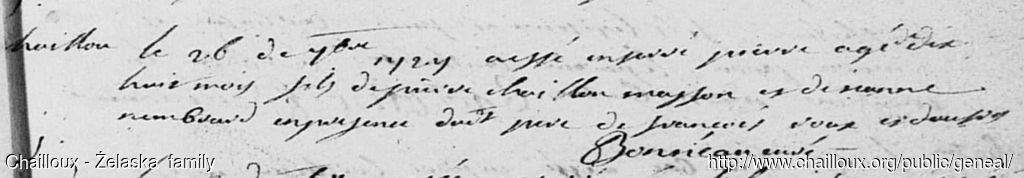 haillou le 26 de 7bre 1729 a esté enterré pierre agé de dix
huit mois fils de pierre chaillou masson et de
en presence dudt pere de françois roux et
curé
Chailloux - Żelaska family
http://www.chailloux.org/public/geneal/